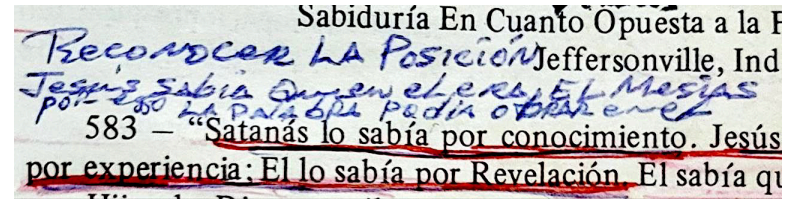 Sabiduría En Cuanto Opuesta a la F
RECONOCER LA POSICIÓN Jeffersonville, Ind
Jesús SABIA Quien el era, EL Mesias
por eso LA PALABRA Podia OBRAR en el
583 – “Satanás lo sabía por conocimiento. Jesús
por experiencia: El lo sabía por Revelación. El sabía qu